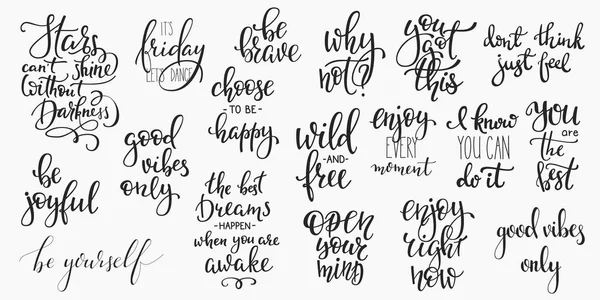 Stars
can't shine
without
Darkness
IT'S
friday
LET'S DANCE
be
brave
why
not?
you
got
this
don't think
just feel
choose
- TO BE -
happy
good
vibes
only
wild
- AND -
free
enjoy
EVERY
moment
I know
YOU CAN
do it
you
are
the
best
be
joyful
the best
Dreams
- HAPPEN -
when you are
awake
open
your
mind
enjoy
right
now
good vibes
only
be yourself